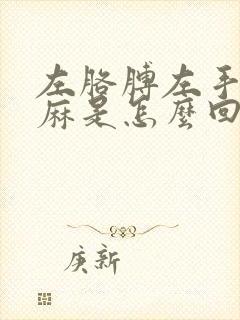 左胳膊左手
麻是怎麼回
庚新